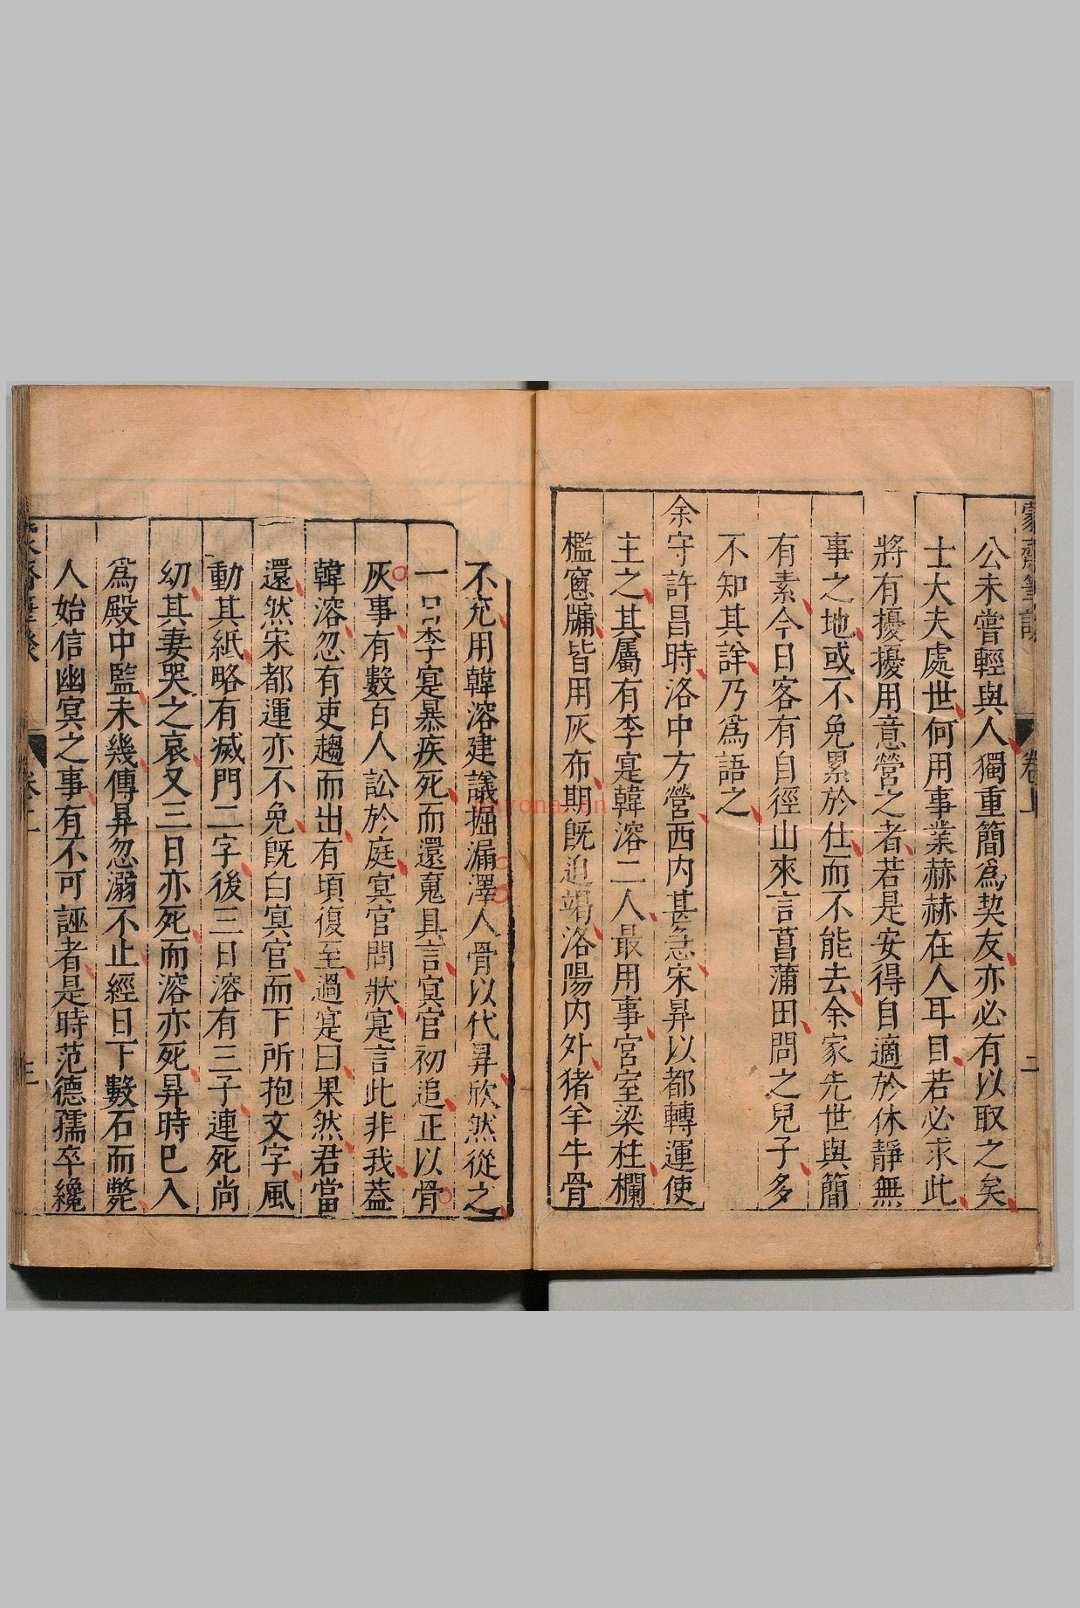 蒙齋筆談
卷上
二
公未嘗輕與人獨重簡爲契友亦必有以取之矣
士大夫處世何用事業赫赫在人耳目若必求此
將有擾擾用意營之者若是安得自適於休靜無
事之地或不免累於仕而不能去余家先世與簡
有素今日客有自徑山來言菖蒲田問之兒子多
不知其詳乃爲語之
余守許昌時洛中方營西内甚急宋昇以都轉運使
主之其屬有李寔韓溶二人最用事宮室梁柱欄
檻窻牖皆用灰布期旣迫竭洛陽内外猪羊牛骨
不充用韓溶建議掘漏澤人骨以代昇欣然從之
一日李寔暴疾死而還䰟具言冥官初追正以骨
灰事有數百人訟於庭冥官問狀寔言此非我蓋
韓溶忽有吏趨而出有頃復至過寔曰果然君當
還然宋都運亦不免旣白冥官而下所抱文字風
動其紙略有滅門二字後三日溶有三子連死尚
幼其妻哭之哀又三日亦死而溶亦死昇時已入
爲殿中監未幾傳昇忽溺不止經日下數石而斃
人始信幽冥之事有不可誣者是時范德孺卒纔